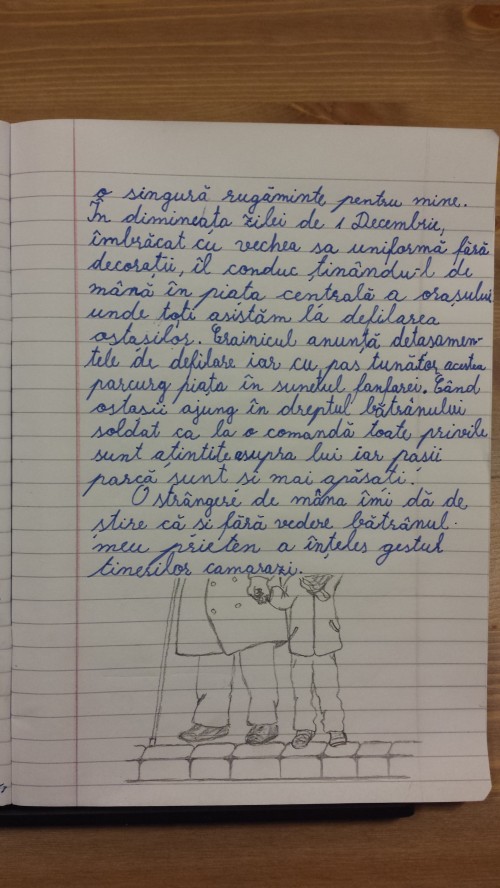 o singură rugăminte pentru mine.
În dimineața zilei de 1 Decembrie,
îmbrăcat cu vechea sa uniformă fără
decorații, îl conduc ținându-l de
mână în piața centrală a orașului
unde toți asistăm la defilarea
ostașilor. Crainicul anunță detașamen-
tele de defilare iar cu pas tunător acestea
parcurg piața în sunetul fanfarei. Când
ostașii ajung în dreptul bătrânului
soldat ca la o comandă toate privile
sunt ațintite asupra lui iar pașii
parcă sunt și mai apăsați.
O strângere de mâna îmi dă de
știre că și fără vedere bătrânul
meu prieten a înțeles gestul
tinerilor camarazi.